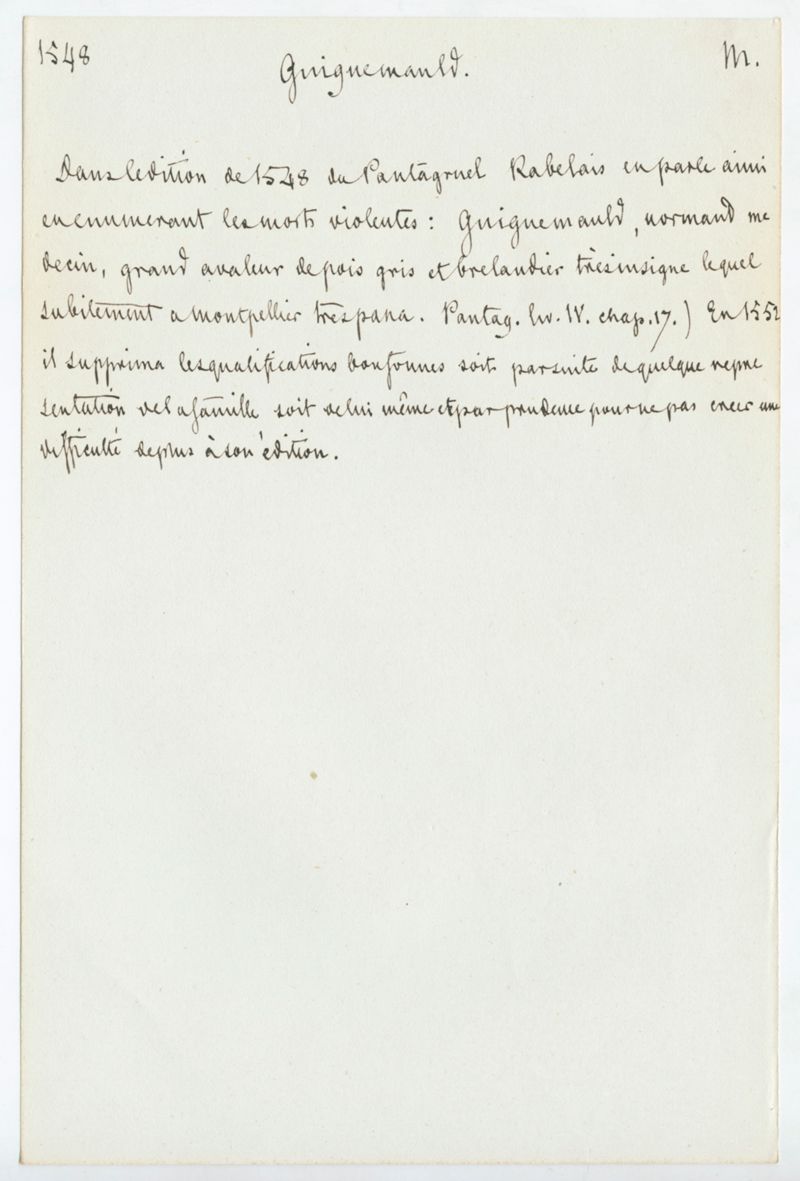 1548 Guiguemauld. M.
Dans ledition de 1548 du Pantagruel Rabelais en parle ainsi
en enumerant les morts violentes : Guiguemauld, normand me
decin, grand avaleur de pois gris et brelandier très insigne lequel
subitement a montpellier trespassa. Pantag. liv. IV. chap. 17. ) En 1552
il supprima les qualifications bouffonnes soit par suite de quelque repre
sentation de la famille soit de lui même et par prudence pour ne pas creer une
difficulté de plus à son édition.